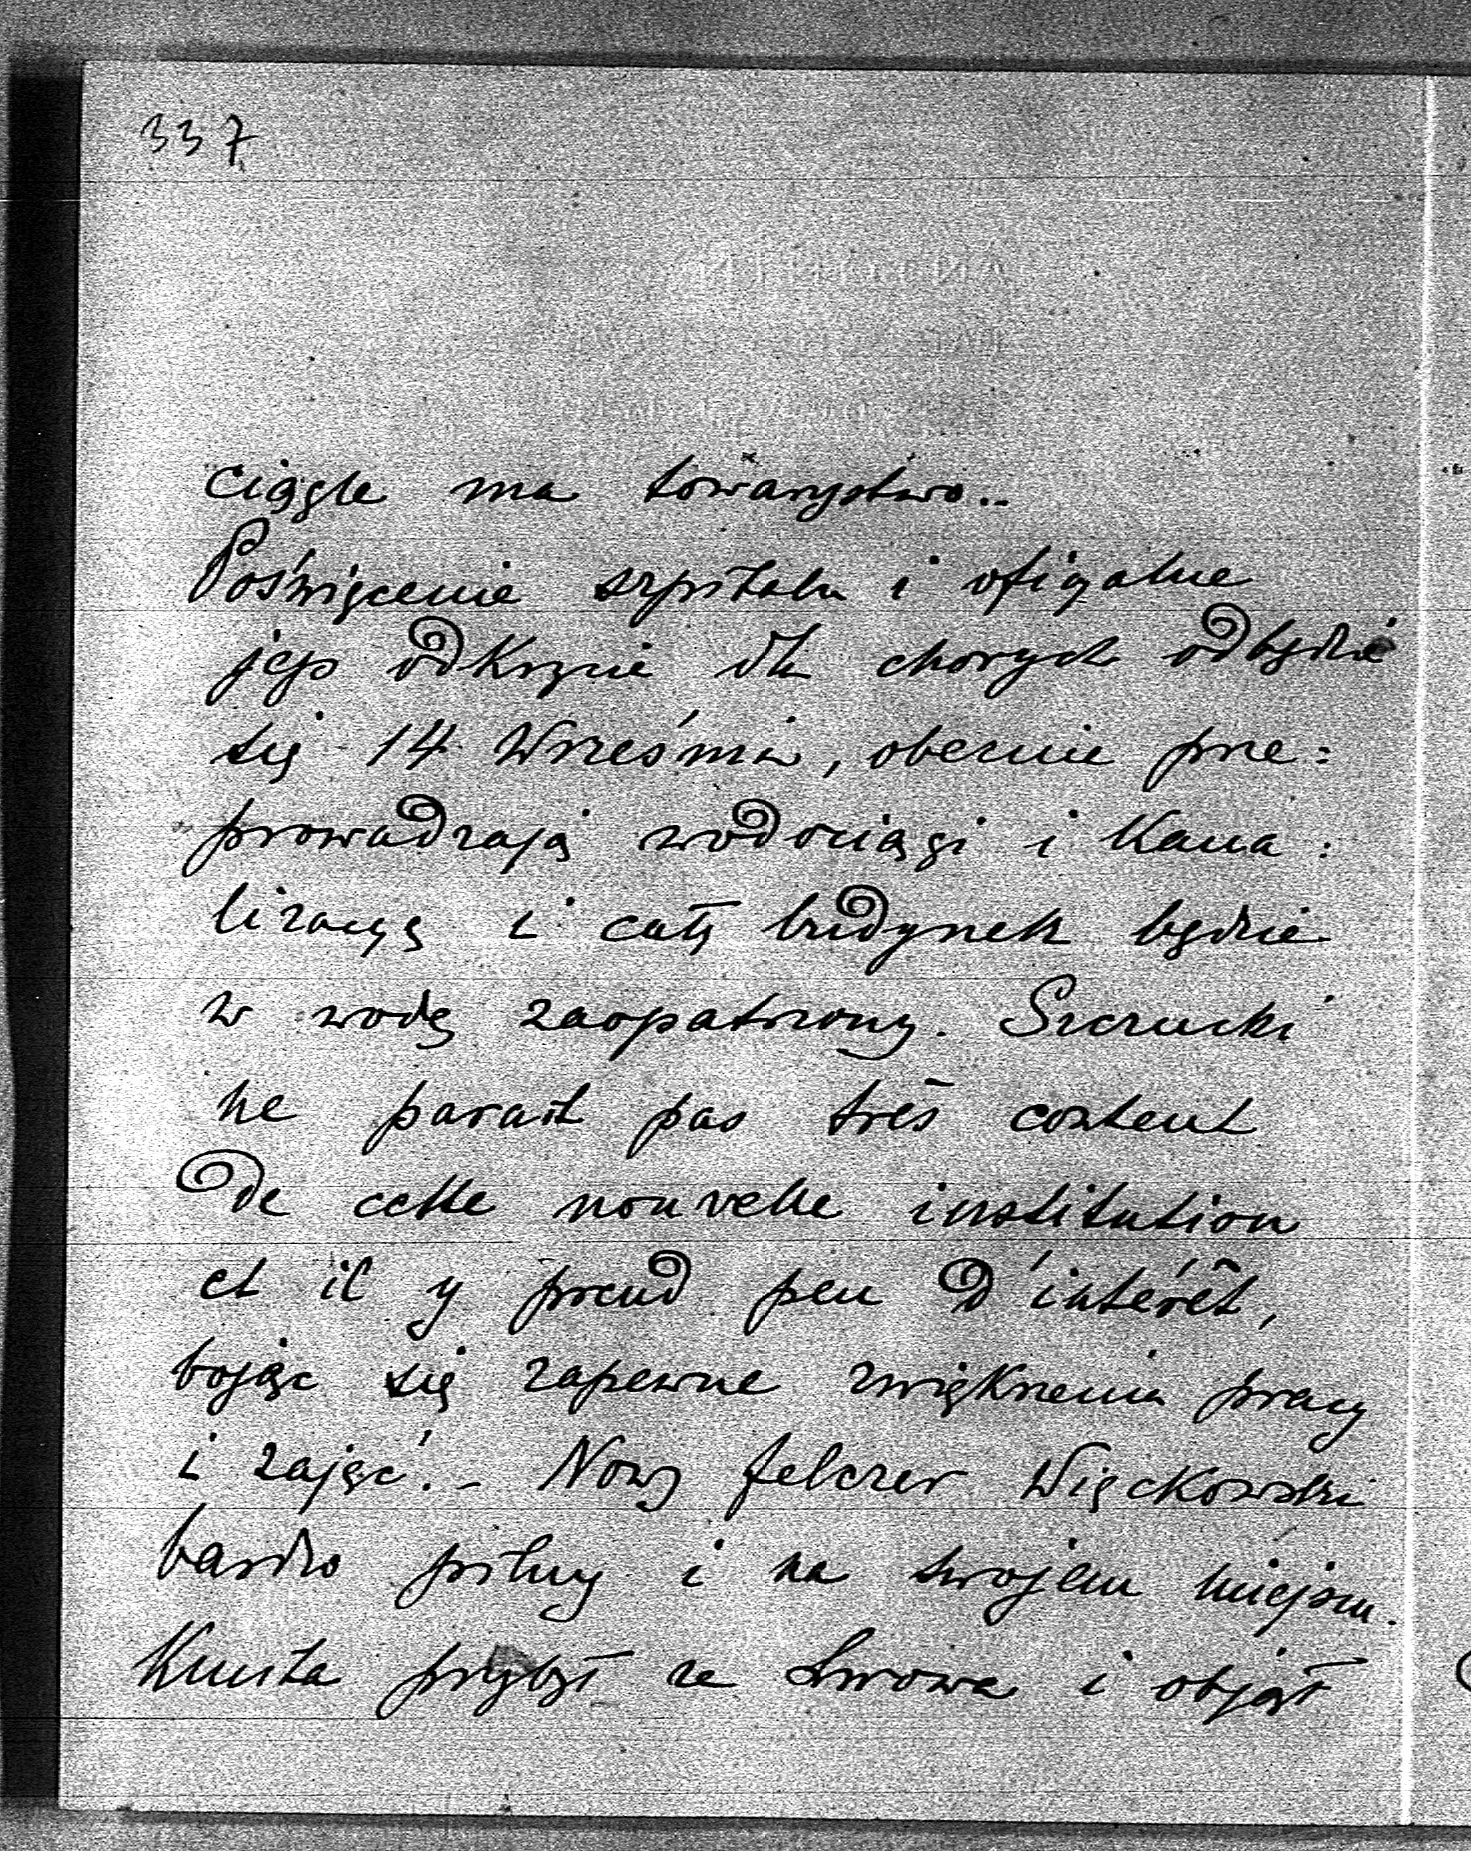 337
ciągle ma towarzystwo..
Poświęcenie szpitala i oficjalne
jego odkrycie dla chorych odbędzie
się 14 Września, obecnie prze:
prowadzają wodociągi i Kana:
lizacyę i cały budynek będzie
w wodę zaopatrzony. Szczucki
ne parait pas très content
de cette nouvelle institution
et il y prend peu d'intérêt,
bojąc się zapewne zwiększenia pracy
i zajęć. – Nowy felczer Więckowski
bardzo pilny i na swojem miejscu.
przybył ze Lwowa i objął